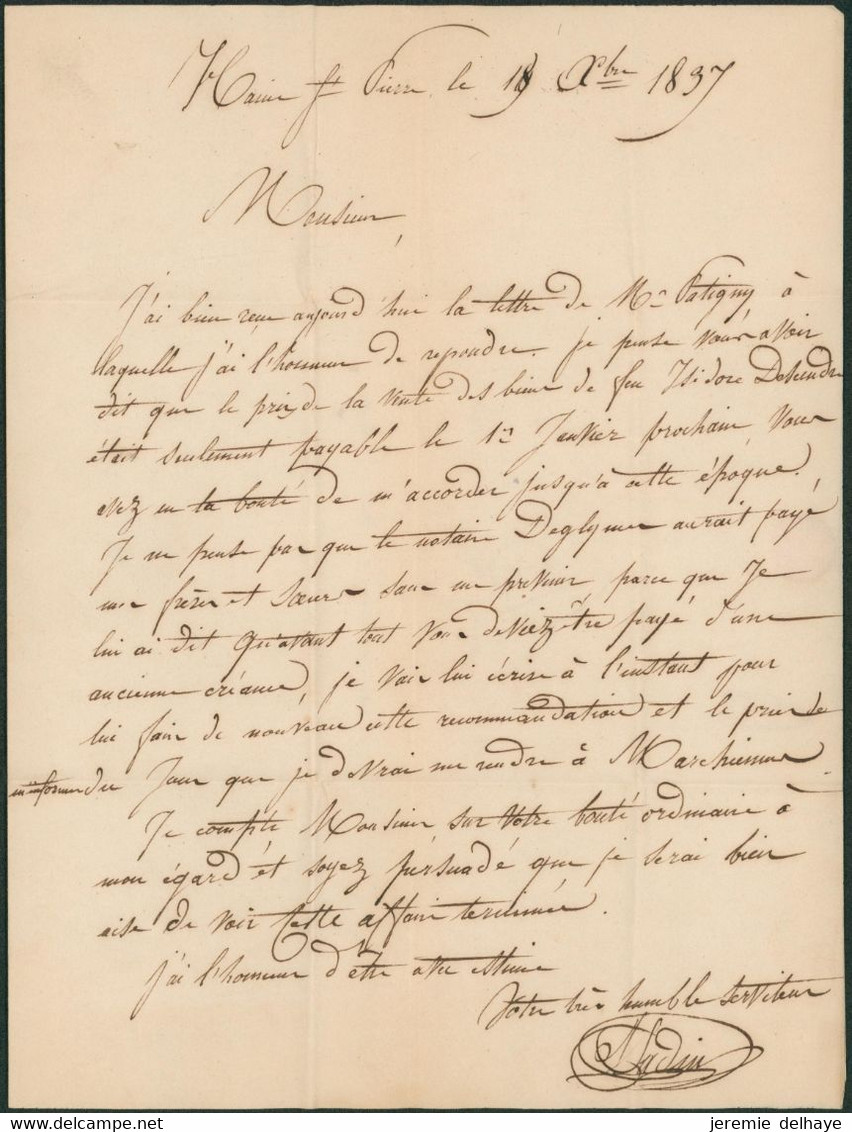 Haine St Pierre le 18 Xbre 1837
Monsieur,
J'ai bien reçu aujourd'hui la lettre de Mr Patigny à
laquelle j'ai l'honneur de repondre. je pense vous avoir
dit que le prix de la vente des biens de feu Isidore
était seulement payable le 1er Janvier prochain, Vous
avez eu la bonté de m'accorder jusqu'à cette époque.
Je ne pense pas que le notaire Deglymes aurait payé
mes frères et sœurs sans me prévenir, parce que Je
lui ai dit qu'avant tout vous deviez être payé d'une
ancienne créance, je vais lui écrire à l'instant pour
lui faire de nouveau cette recommandation et le prier de
m'informer du Jour que je devrai me rendre à Marchiennes.
Je compte Monsieur sur votre bonté ordinaire à
mon égard et soyez persuadé que je serai bien
aise de voir cette affaire terminée.
j'ai l'honneur d'être avec estime
Votre très humble serviteur
jeremie delhaye